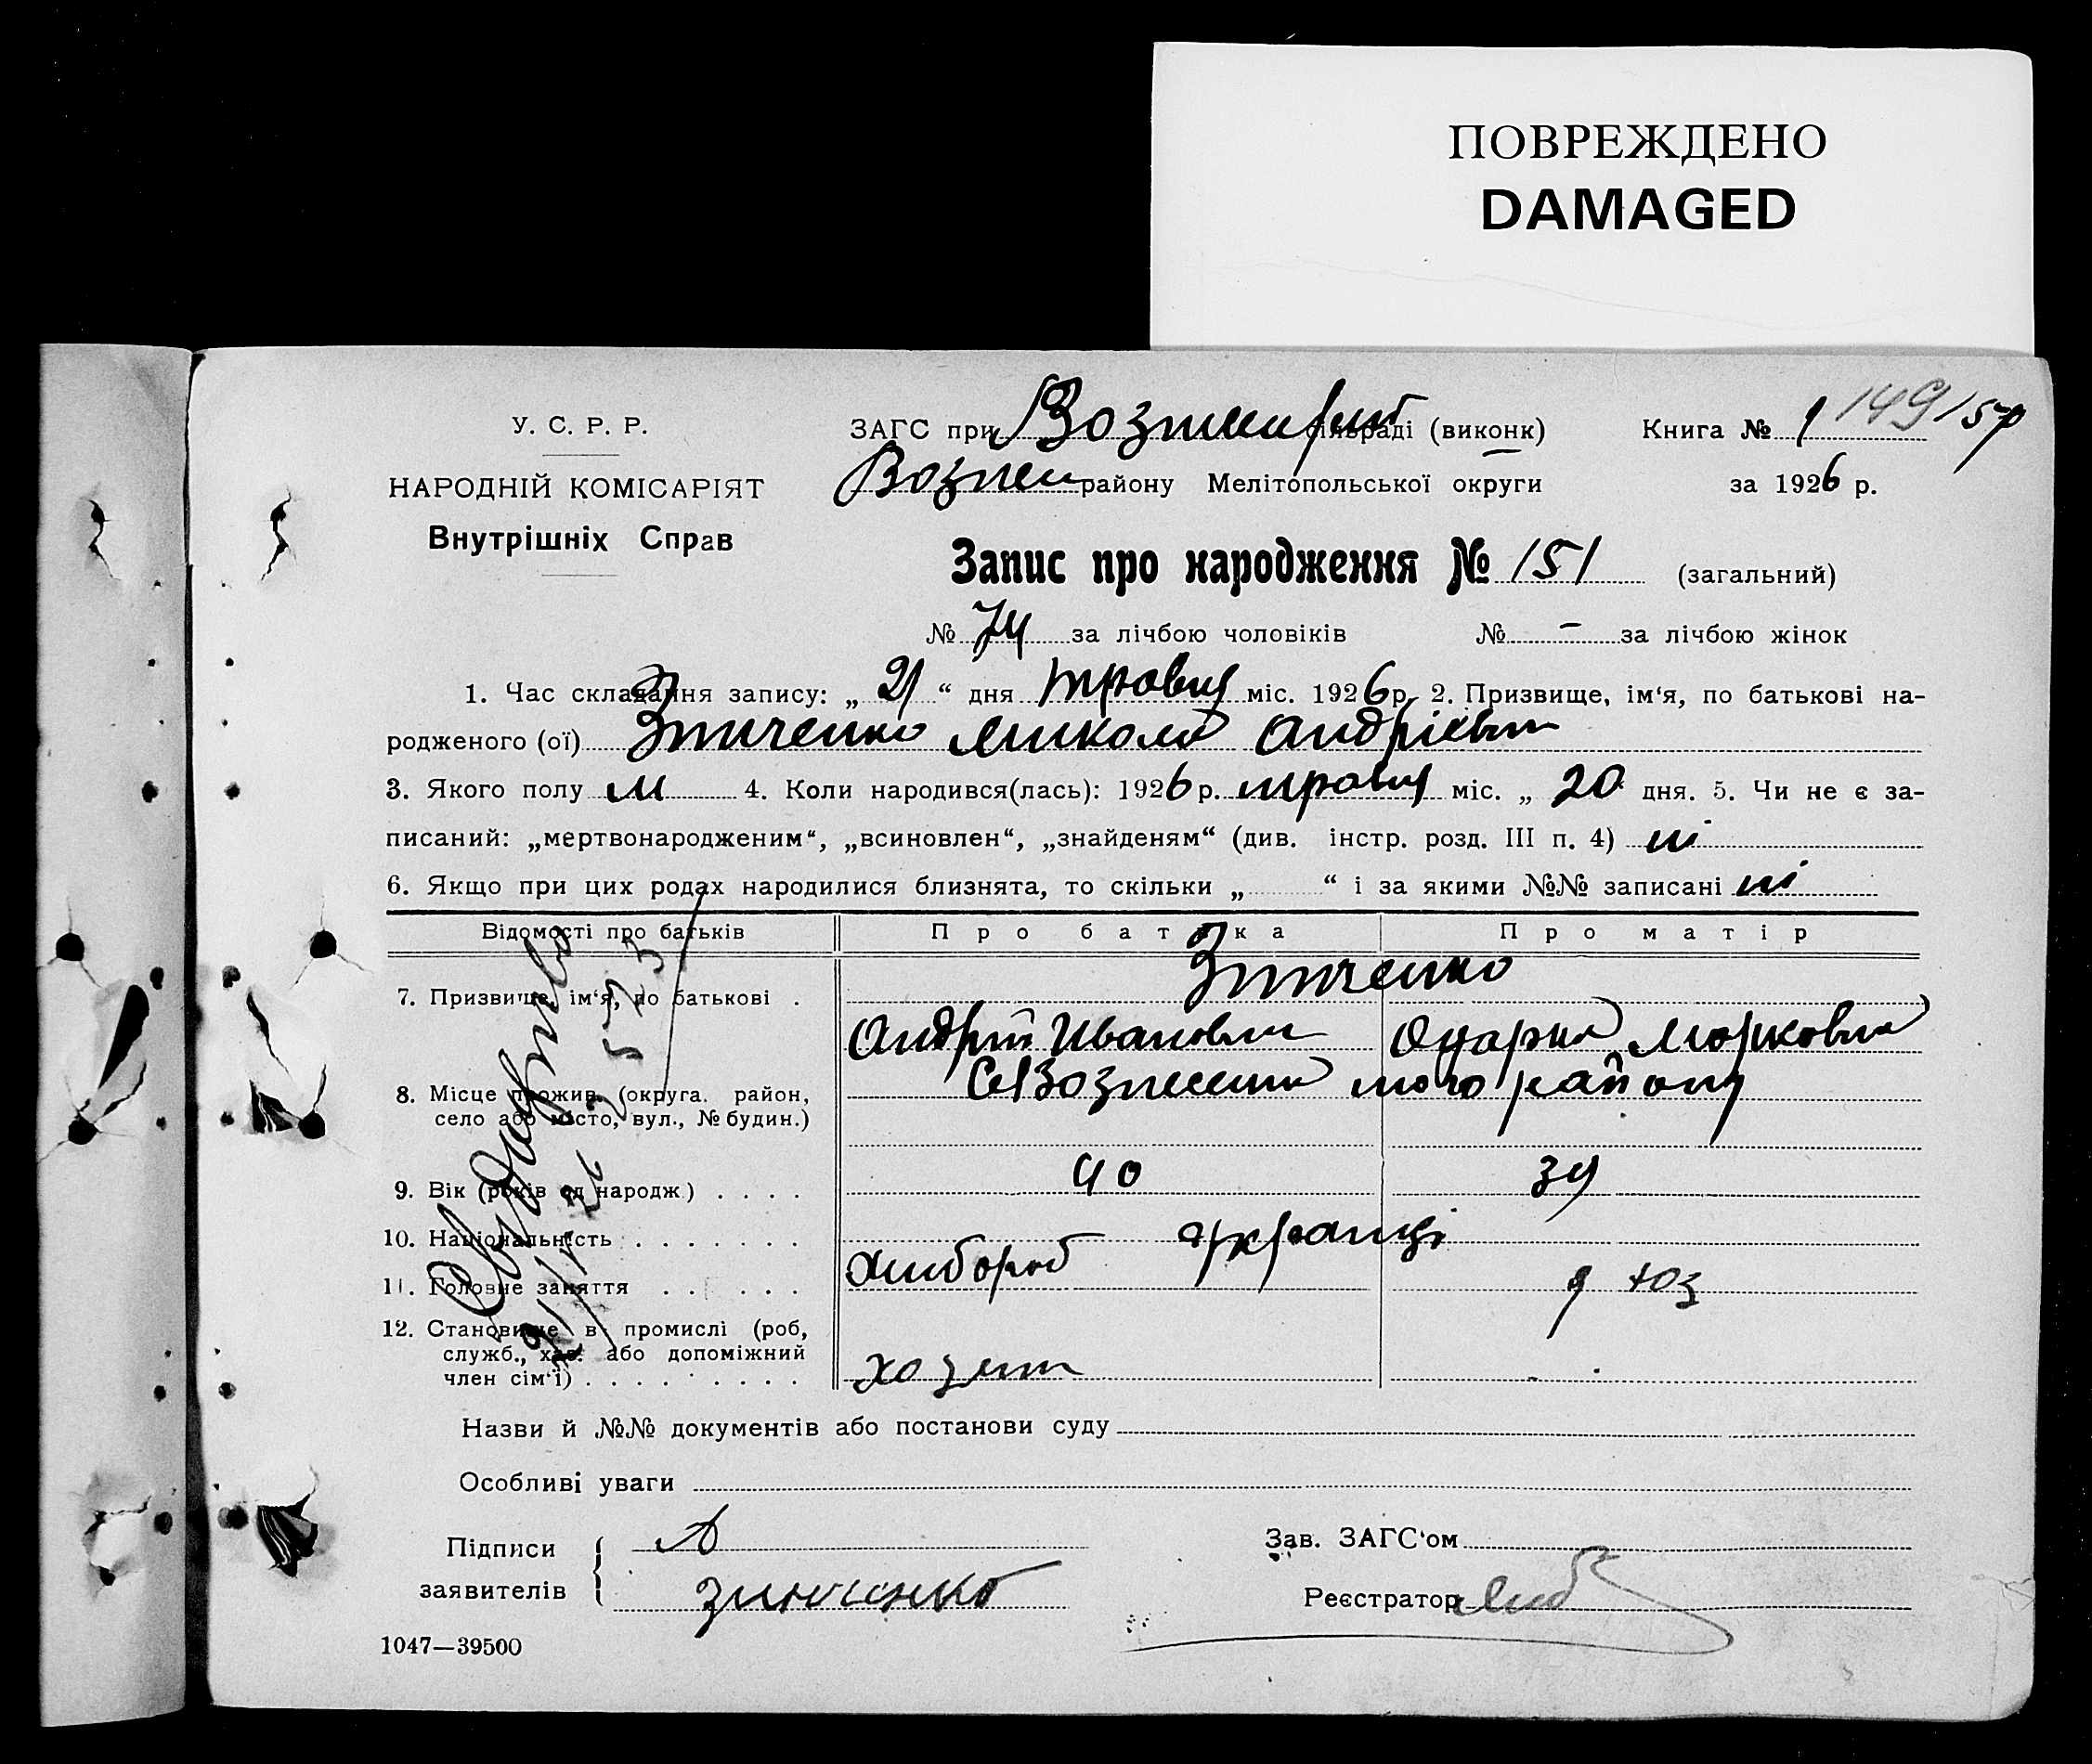 ПОВРЕЖДЕНО
DAMAGED
У. С. Р. Р.
НАРОДНІЙ КОМІСАРІЯТ
Внутрішніх Справ
ЗАГС при сільраді (виконк)
Книга № 1 149 157
Вознен району Мелітопольської округи
за 1926 р.
Запис про народження № 151 (загальний)
№ 74 за лічбою чоловіків № - за лічбою жінок
1. Час складання запису: „ 21 “ дня травня міс. 1926 р. 2. Призвище, ім‘я, по батькові на-
родженого (ої) Зинченко Микола Андрієвич
3. Якого полу М 4. Коли народився(лась): 1926 р. травня міс. „ 20 дня. 5. Чи не є за-
писаний: „мертвонародженим“, „всиновлен“, „знайденям“ (див. інстр. розд. III п. 4) ні
6. Якщо при цих родах народилися близнята, то скільки „ “ і за якими №№ записані ні
Відомості про батьків Про батька Про матір
Зинченко
7. Призвище, ім‘я, по батькові .
Андрій Иванович Одарка Марковна
8. Місце прожив. (округа, район,
село або місто, вул., № будин.)
9. Вік (років од народж.) . . . . 40 39
10. Національність . . . . . . . українці
11. Головне заняття . . . . . хлібороб
12. Становище в промислі (роб,
служб., хаз. або допоміжний
член сім‘ї) . . . . . . . . . хозяин
Назви й №№ документів або постанови суду
Особливі уваги
Підписи
заявителів
А
зинченко
Зав. ЗАГС‘ом
Реєстратор
1047—39500